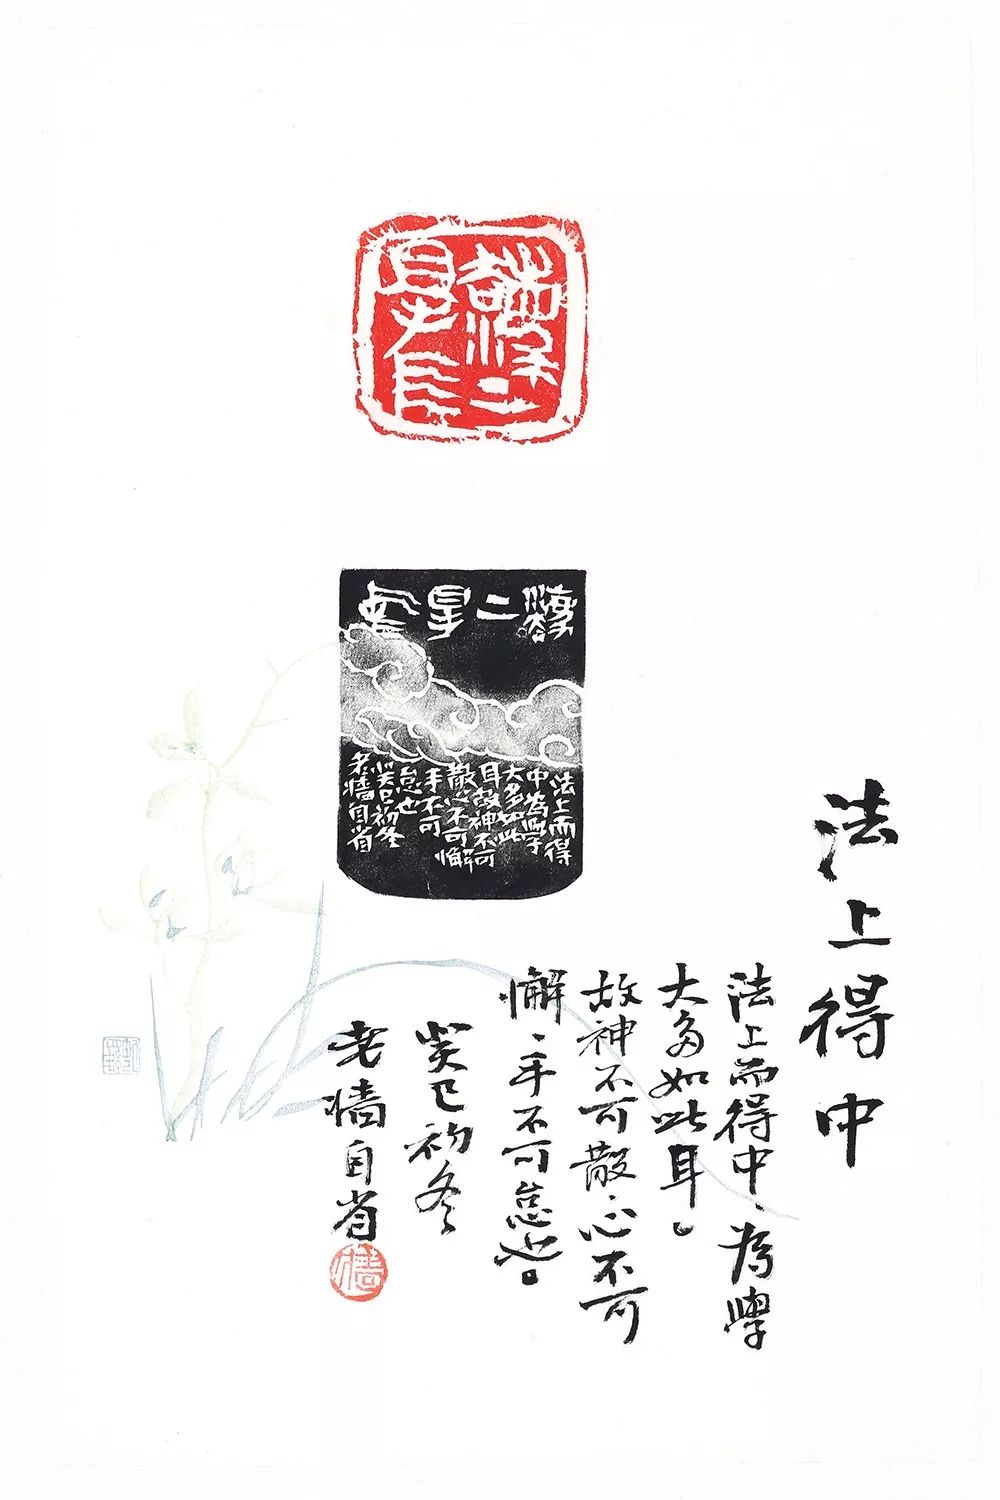 法上得中
法上而得中、為學
大多如此耳。
故神不可散、心不可
懈、手不可怠也。
癸巳初冬
老墙自省
二
法上而得
中為學
大多如此
耳故神不可
散心不可懈
手不可
怠也
癸巳初冬
老墙自省
墙